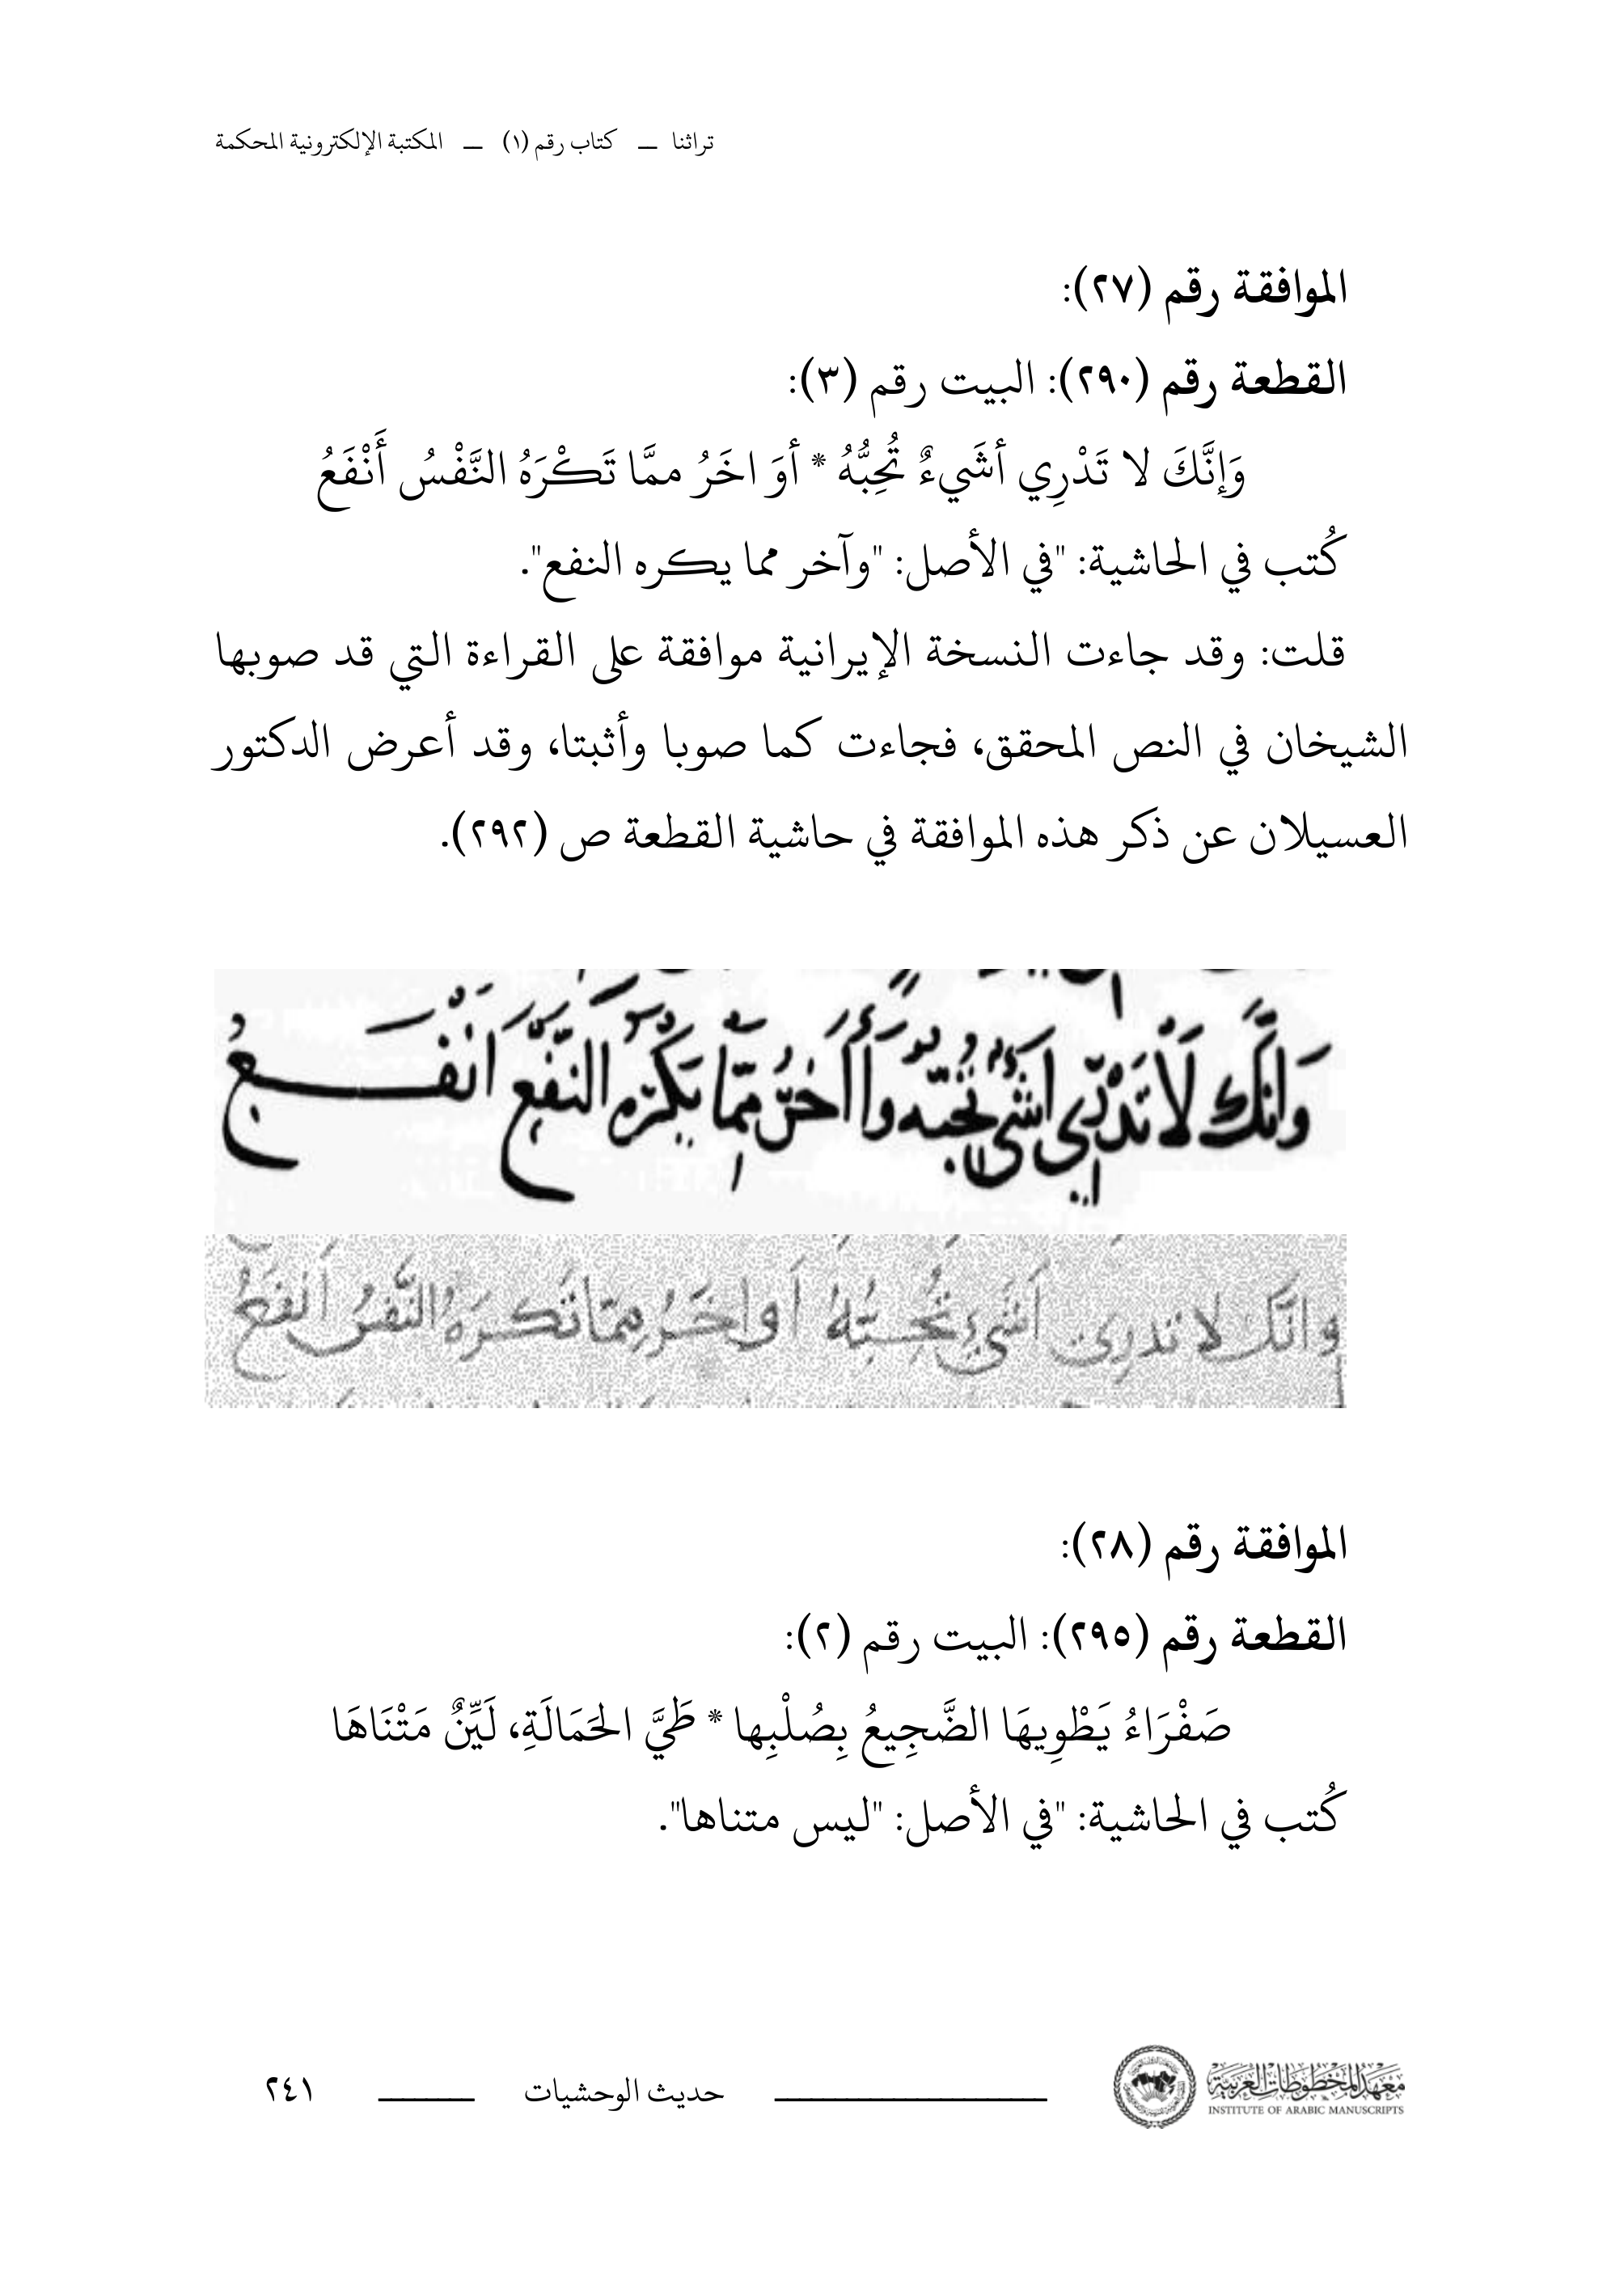 تراثنا ـــ كتاب رقم (١) ـــ المكتبة الإلكترونية المحكمة
الموافقة رقم (٢٧):
القطعة رقم (٢٩٠): البيت رقم (٣):
وَإِنَّكَ لا تَدْرِي أشَيءٌ تُحِبُّهُ * أوَ اخَرُ ممَّا تَكْرَهُ النَّفْسُ أَنْفَعُ
كُتب في الحاشية: "في الأصل: "وآخر مما يكره النفع".
قلت: وقد جاءت النسخة الإيرانية موافقة على القراءة التي قد صوبها
الشيخان في النص المحقق، فجاءت كما صوبا وأثبتا، وقد أعرض الدكتور
العسيلان عن ذكر هذه الموافقة في حاشية القطعة ص (٢٩٢).
وَانَّكَ لَا تَدْرِي اَشَىءٌ تُحِبُّه وَأَآخَرُ مِمَّا يَكْرَه النَّفْعَ اَنْفَعُ
وانَّكَ لا تدرِى أَشَىءٌ تُحِبُّهُ أَواخَرُ مِمَّا تَكرَهُ النَّفسُ أَنفَعُ
الموافقة رقم (٢٨):
القطعة رقم (٢٩٥): البيت رقم (٢):
صَفْرَاءُ يَطْوِيهَا الضَّجِيعُ بِصُلْبِها * طَيَّ الحَمَالَةِ، لَيِّنٌ مَتْنَاهَا
كُتب في الحاشية: "في الأصل: "ليس متناها".
معهد المخطوطات العربية
INSTITUTE OF ARABIC MANUSCRIPTS
حديث الوحشيات
٢٤١